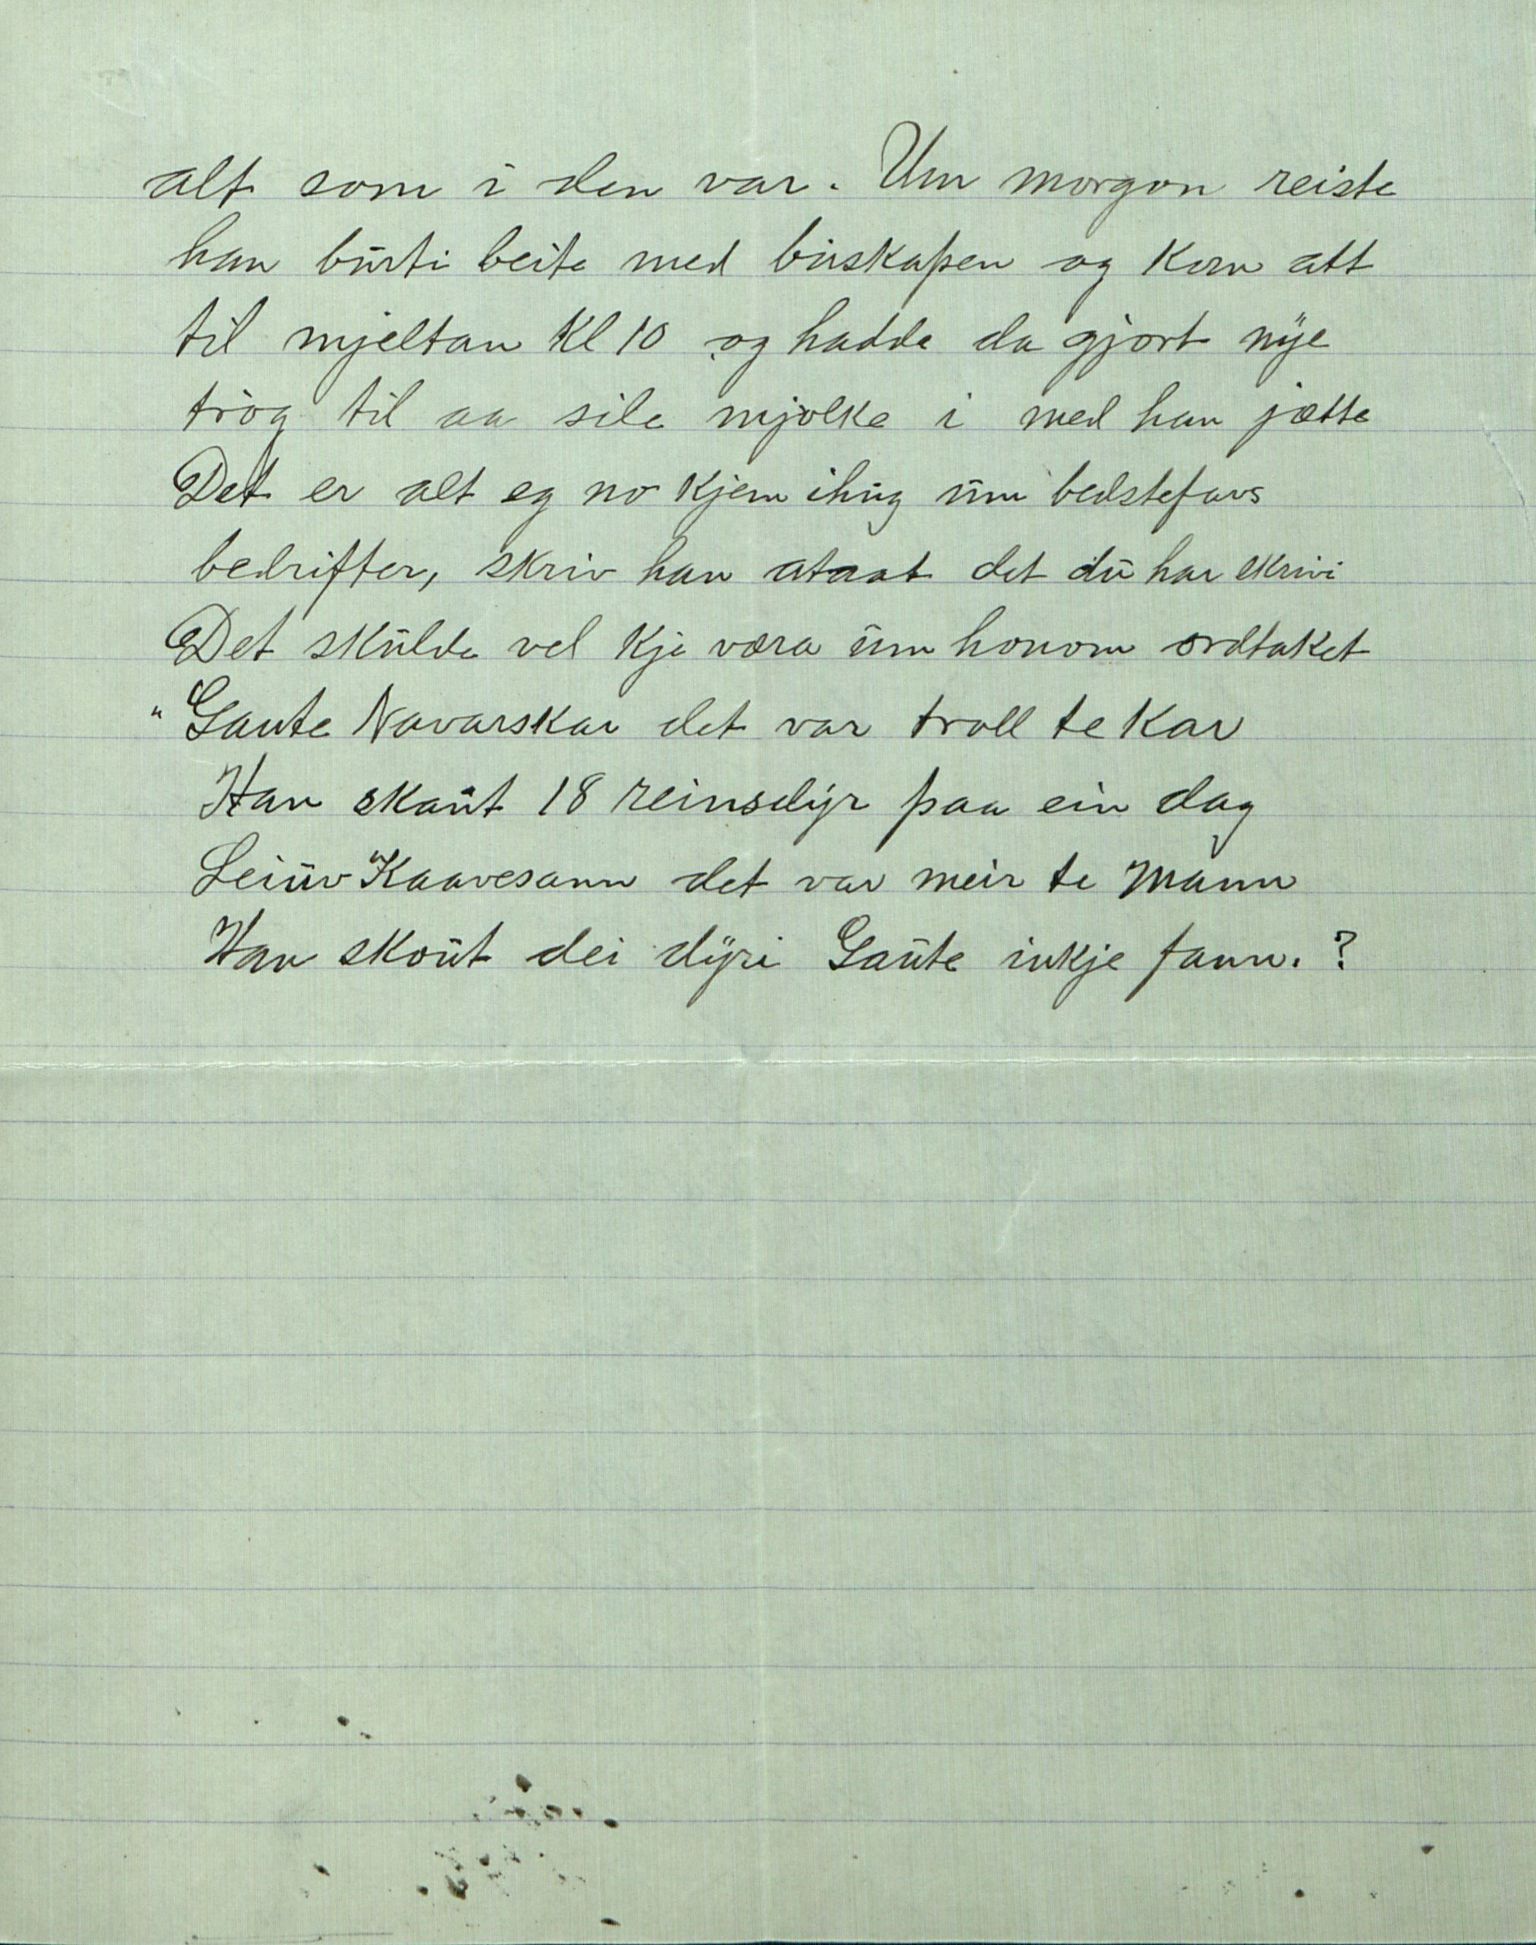 alt som i den var. Um morgon reiste
han burti beite med buskapen og kom att
til mjeltan Kl 10 og hadde da gjort nye
trog til aa sile mjølke i med han jætte
Det er alt eg no kjem ihug um bedstefars
bedrifter, skriv han ataat det du har skrivi
Det skulde vel kje vera um honom ordtaket
"Gaute Navarskar det var troll te kar
Han skaut 18 reinsdyr paa ein dag
Leiuv Kaavesann det var meir te mann
Han skout dei dyri Gaute inkje fann.?